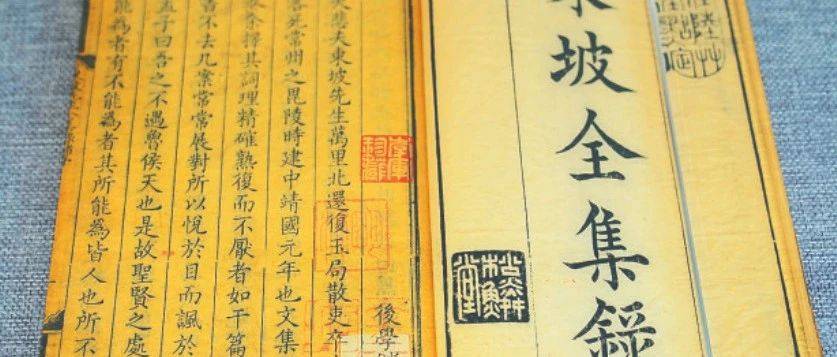 東坡全集錄
後學
悲夫東坡先生萬里北還復玉局散吏卒
死常州之毘陵時建中靖國元年也文集
擇其詞理精確熟復而不厭者如干篇
書不去几案常常展對所以悅於目而諷於
孟子曰吾之不遇魯侯天也是故聖賢之處
能為者有不能為者其所能為皆人也所不